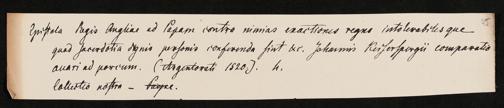 Epistola Regis Angliae ad Papam contra nimias exactiones regno intolerabilesque
quod sacerdotia dignis personis conferenda sint &c. Johannis Keiserspergii comparatio
avari ad porcum. (Argentorati 1520.). 4.
Collectio nostra —